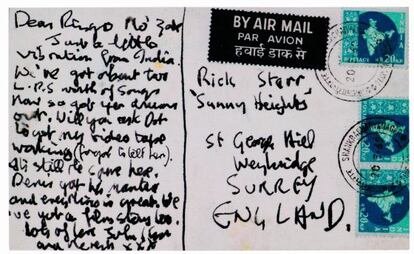 Dear Ringo Mo Zak
Just a little
vibration from India.
We've got about two
L.P.S worth of songs
now so get your drums
out. Will you ask Dot
to get my video tape
working (forgot to tell her).
It's still to come here.
and everything is great. We
've got a film story too.
lots of love John
and
BY AIR MAIL
PAR AVION
हवाई डाक से
Rick Starr
'Sunny Heights'
St George Hill
Weybridge
SURREY
ENGLAND.
INDIA
20